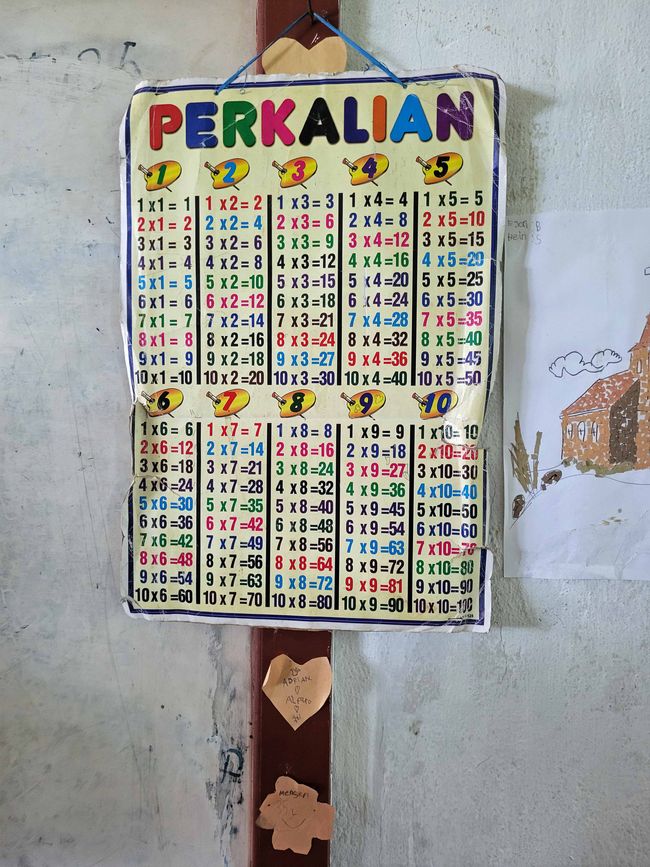 PERKALIAN
1
1 x 1 = 1
2 x 1 = 2
3 x 1 = 3
4 x 1 = 4
5 x 1 = 5
6 x 1 = 6
7 x 1 = 7
8 x 1 = 8
9 x 1 = 9
10 x 1 = 10
2
1 x 2 = 2
2 x 2 = 4
3 x 2 = 6
4 x 2 = 8
5 x 2 = 10
6 x 2 = 12
7 x 2 = 14
8 x 2 = 16
9 x 2 = 18
10 x 2 = 20
3
1 x 3 = 3
2 x 3 = 6
3 x 3 = 9
4 x 3 = 12
5 x 3 = 15
6 x 3 = 18
7 x 3 = 21
8 x 3 = 24
9 x 3 = 27
10 x 3 = 30
4
1 x 4 = 4
2 x 4 = 8
3 x 4 = 12
4 x 4 = 16
5 x 4 = 20
6 x 4 = 24
7 x 4 = 28
8 x 4 = 32
9 x 4 = 36
10 x 4 = 40
5
1 x 5 = 5
2 x 5 = 10
3 x 5 = 15
4 x 5 = 20
5 x 5 = 25
6 x 5 = 30
7 x 5 = 35
8 x 5 = 40
9 x 5 = 45
10 x 5 = 50
6
1 x 6 = 6
2 x 6 = 12
3 x 6 = 18
4 x 6 = 24
5 x 6 = 30
6 x 6 = 36
7 x 6 = 42
8 x 6 = 48
9 x 6 = 54
10 x 6 = 60
7
1 x 7 = 7
2 x 7 = 14
3 x 7 = 21
4 x 7 = 28
5 x 7 = 35
6 x 7 = 42
7 x 7 = 49
8 x 7 = 56
9 x 7 = 63
10 x 7 = 70
8
1 x 8 = 8
2 x 8 = 16
3 x 8 = 24
4 x 8 = 32
5 x 8 = 40
6 x 8 = 48
7 x 8 = 56
8 x 8 = 64
9 x 8 = 72
10 x 8 = 80
9
1 x 9 = 9
2 x 9 = 18
3 x 9 = 27
4 x 9 = 36
5 x 9 = 45
6 x 9 = 54
7 x 9 = 63
8 x 9 = 72
9 x 9 = 81
10 x 9 = 90
10
1 x 10 = 10
2 x 10 = 20
3 x 10 = 30
4 x 10 = 40
5 x 10 = 50
6 x 10 = 60
7 x 10 = 70
8 x 10 = 80
9 x 10 = 90
10 x 10 = 100
ADRIAN